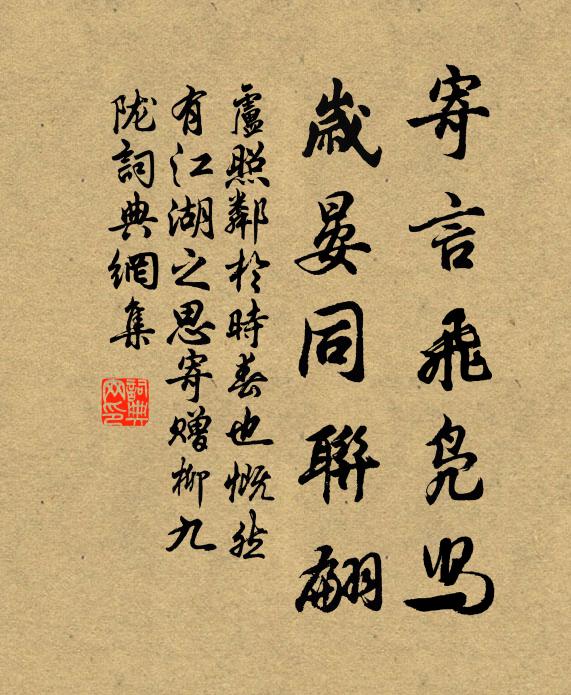 寄言飛凫舄
歲晏同聯翩
盧照鄰於時春也慨然
有江湖之思寄贈柳九
陇詞典網集
詞典網印